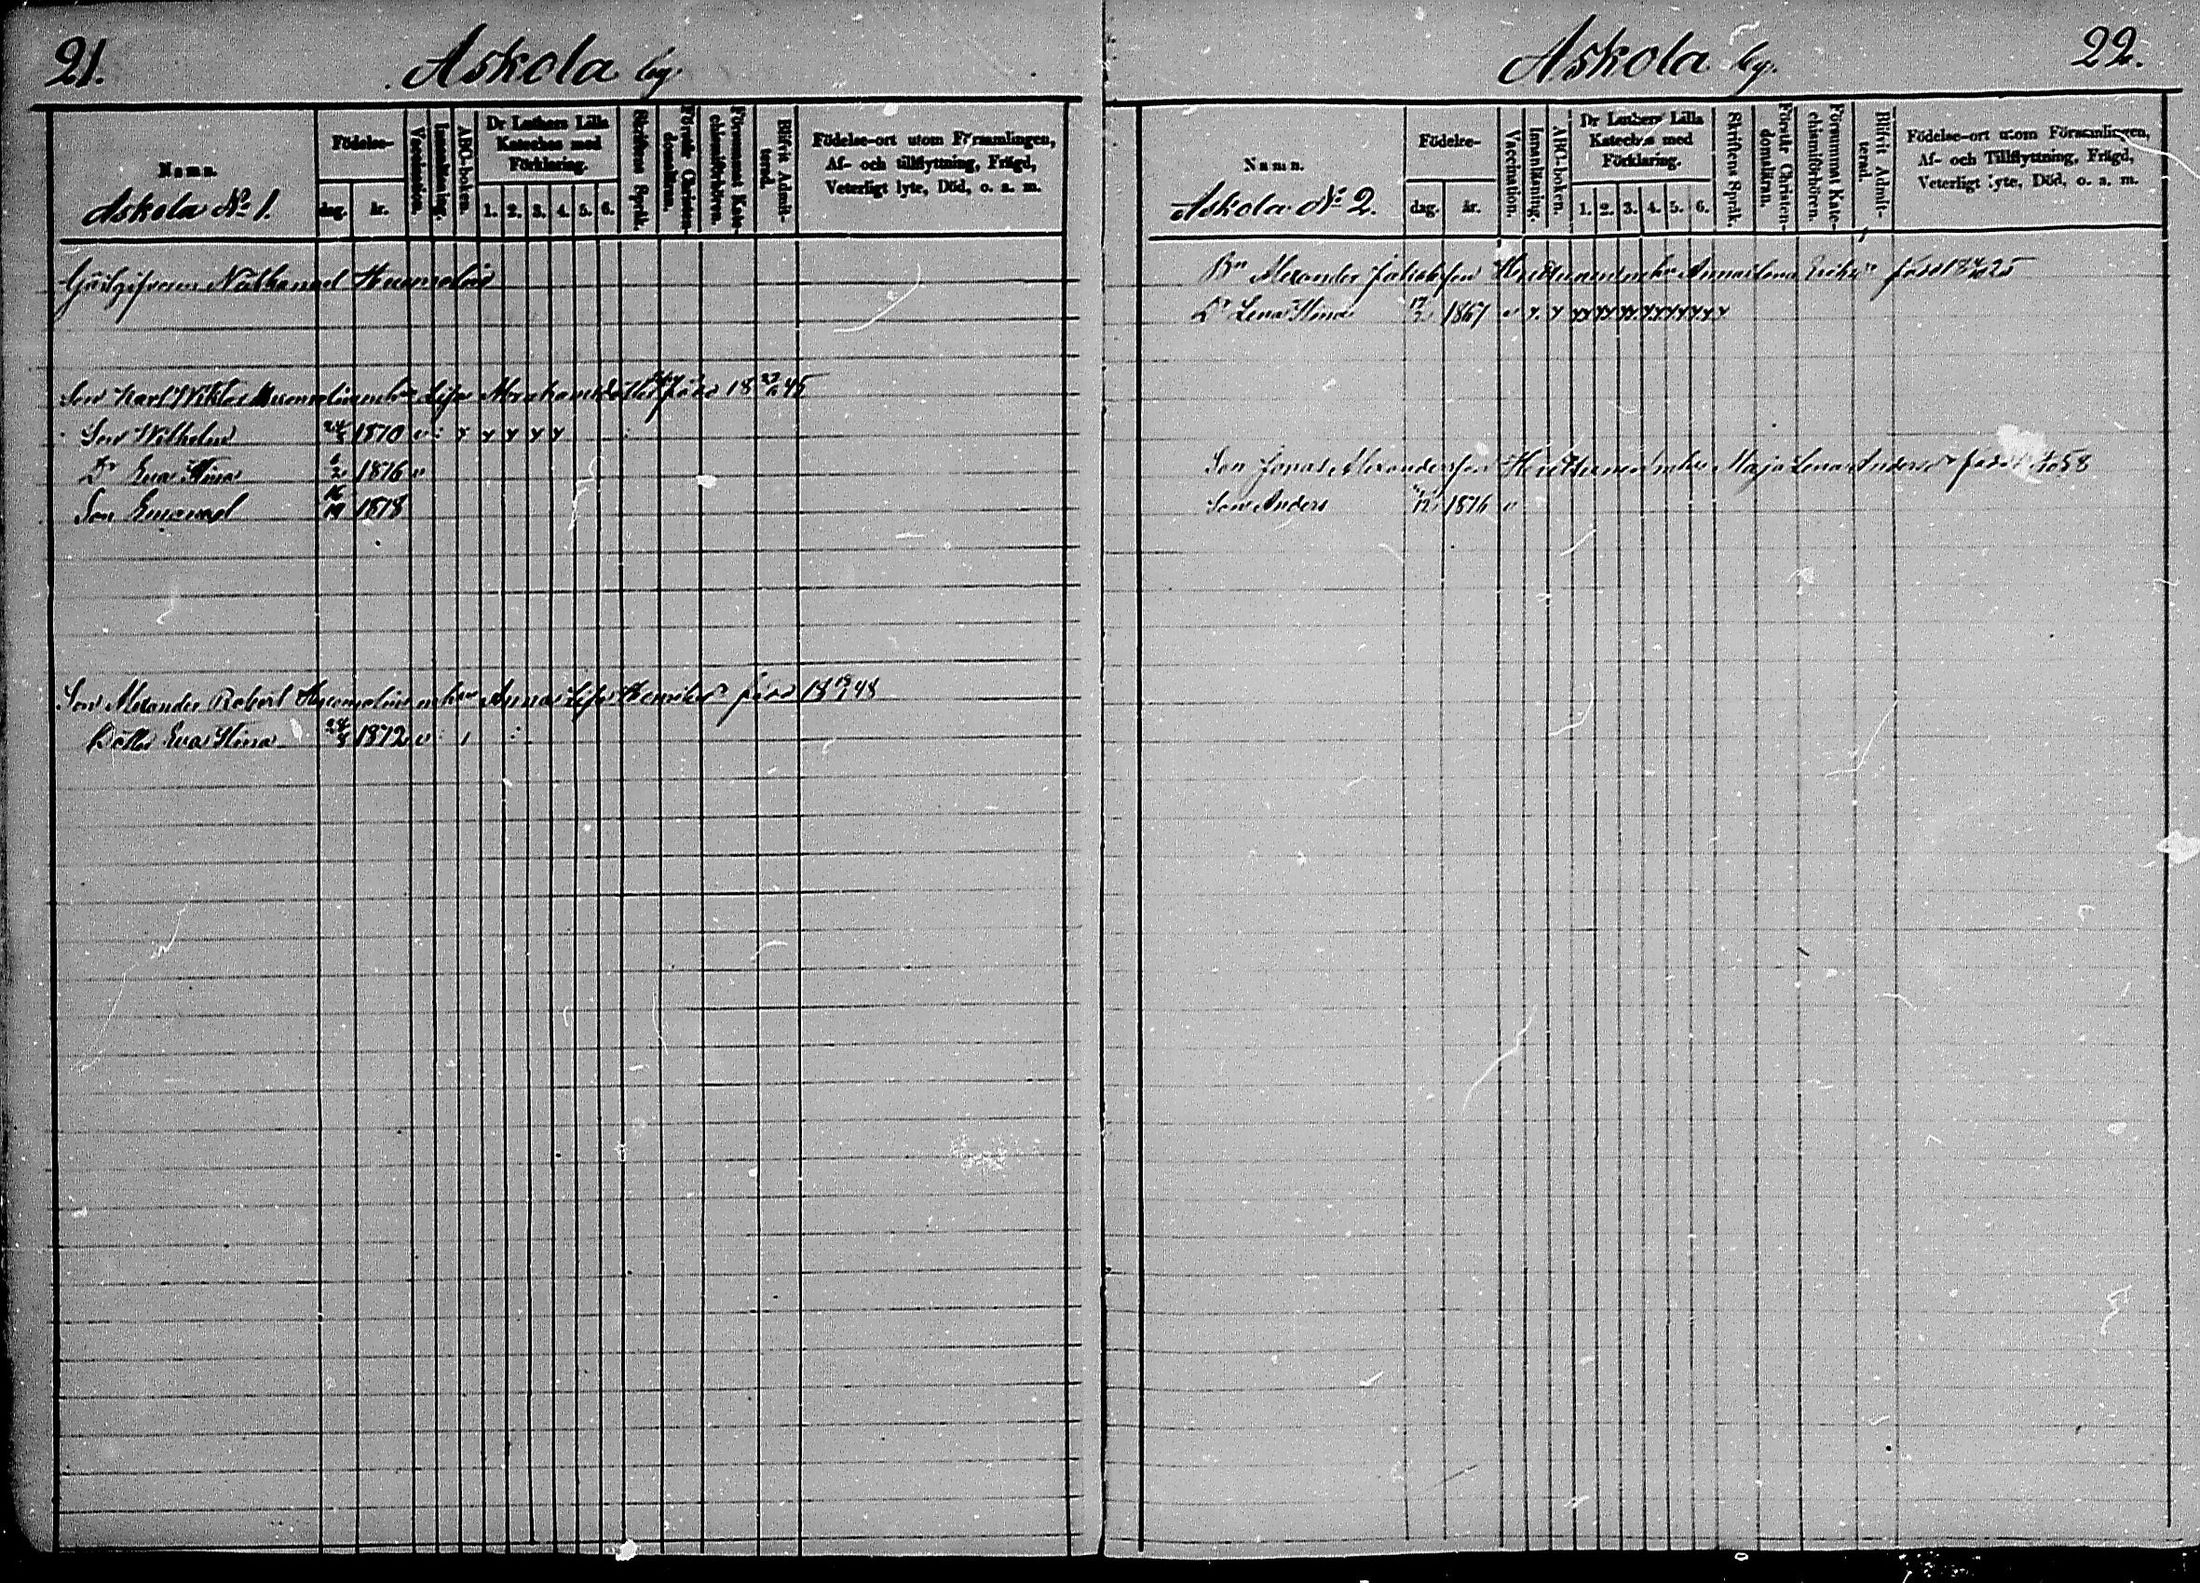 21.
Askola by.
Namn.
Askola No 1.
Födelse-
dag.
år.
Vaccination.
Innanläsning.
ABC-boken.
Dr Luthers Lilla
Kateches med
Förklaring.
1. 2. 3. 4. 5. 6.
Skriftens Språk.
Förstår Christen-
domsläran.
Försummat Kate-
chismiförhören.
Blifvit Admit-
terad.
Födelse-ort utom Församlingen,
Af- och tillflyttning, Frägd,
Veterligt lyte, Död, o. s. m.
Nathanael
Son Karl Viktor Lisa född 18 45
Son Wilhelm 24/5 1870 v
Dr Eva Stina 6/2 1876 v
Son Emanuel 16/11 1878
Son Alexander Robert Anna Lisa född 18 48
Dotter Eva Stina 24/8 1872 v
22.
Askola by.
Namn.
Askola No 2.
Födelse-
dag.
år.
Vaccination.
Innanläsning.
ABC-boken.
Dr Luthers Lilla
Kateches med
Förklaring.
1. 2. 3. 4. 5. 6.
Skriftens Språk.
Förstår Christen-
domsläran.
Försummat Kate-
chismiförhören.
Blifvit Admit-
terad.
Födelse-ort utom Församlingen,
Af- och Tillflyttning, Frägd,
Veterligt lyte, Död, o. s. m.
Bn Alexander Jakobsson Anna Lena född 18 25
Dr Lena Stina 1867 v
Son Jonas Alexandersson Maja Lena född 58
Son Anders 1876 v